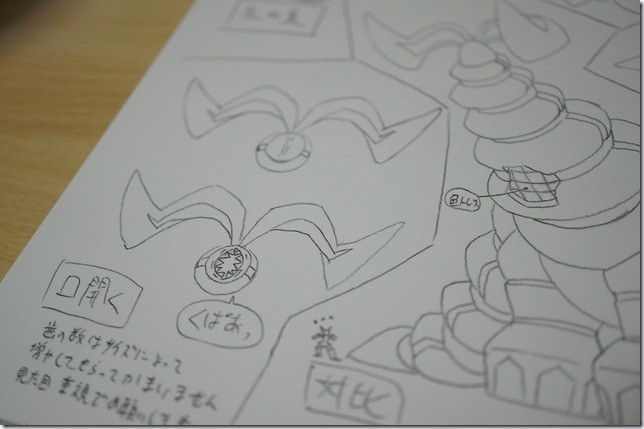 色トレス
口開く
くばあっ
歯の数はサイズによって
増やしてもらってかまいません
見た目 重視でお願いします
対比